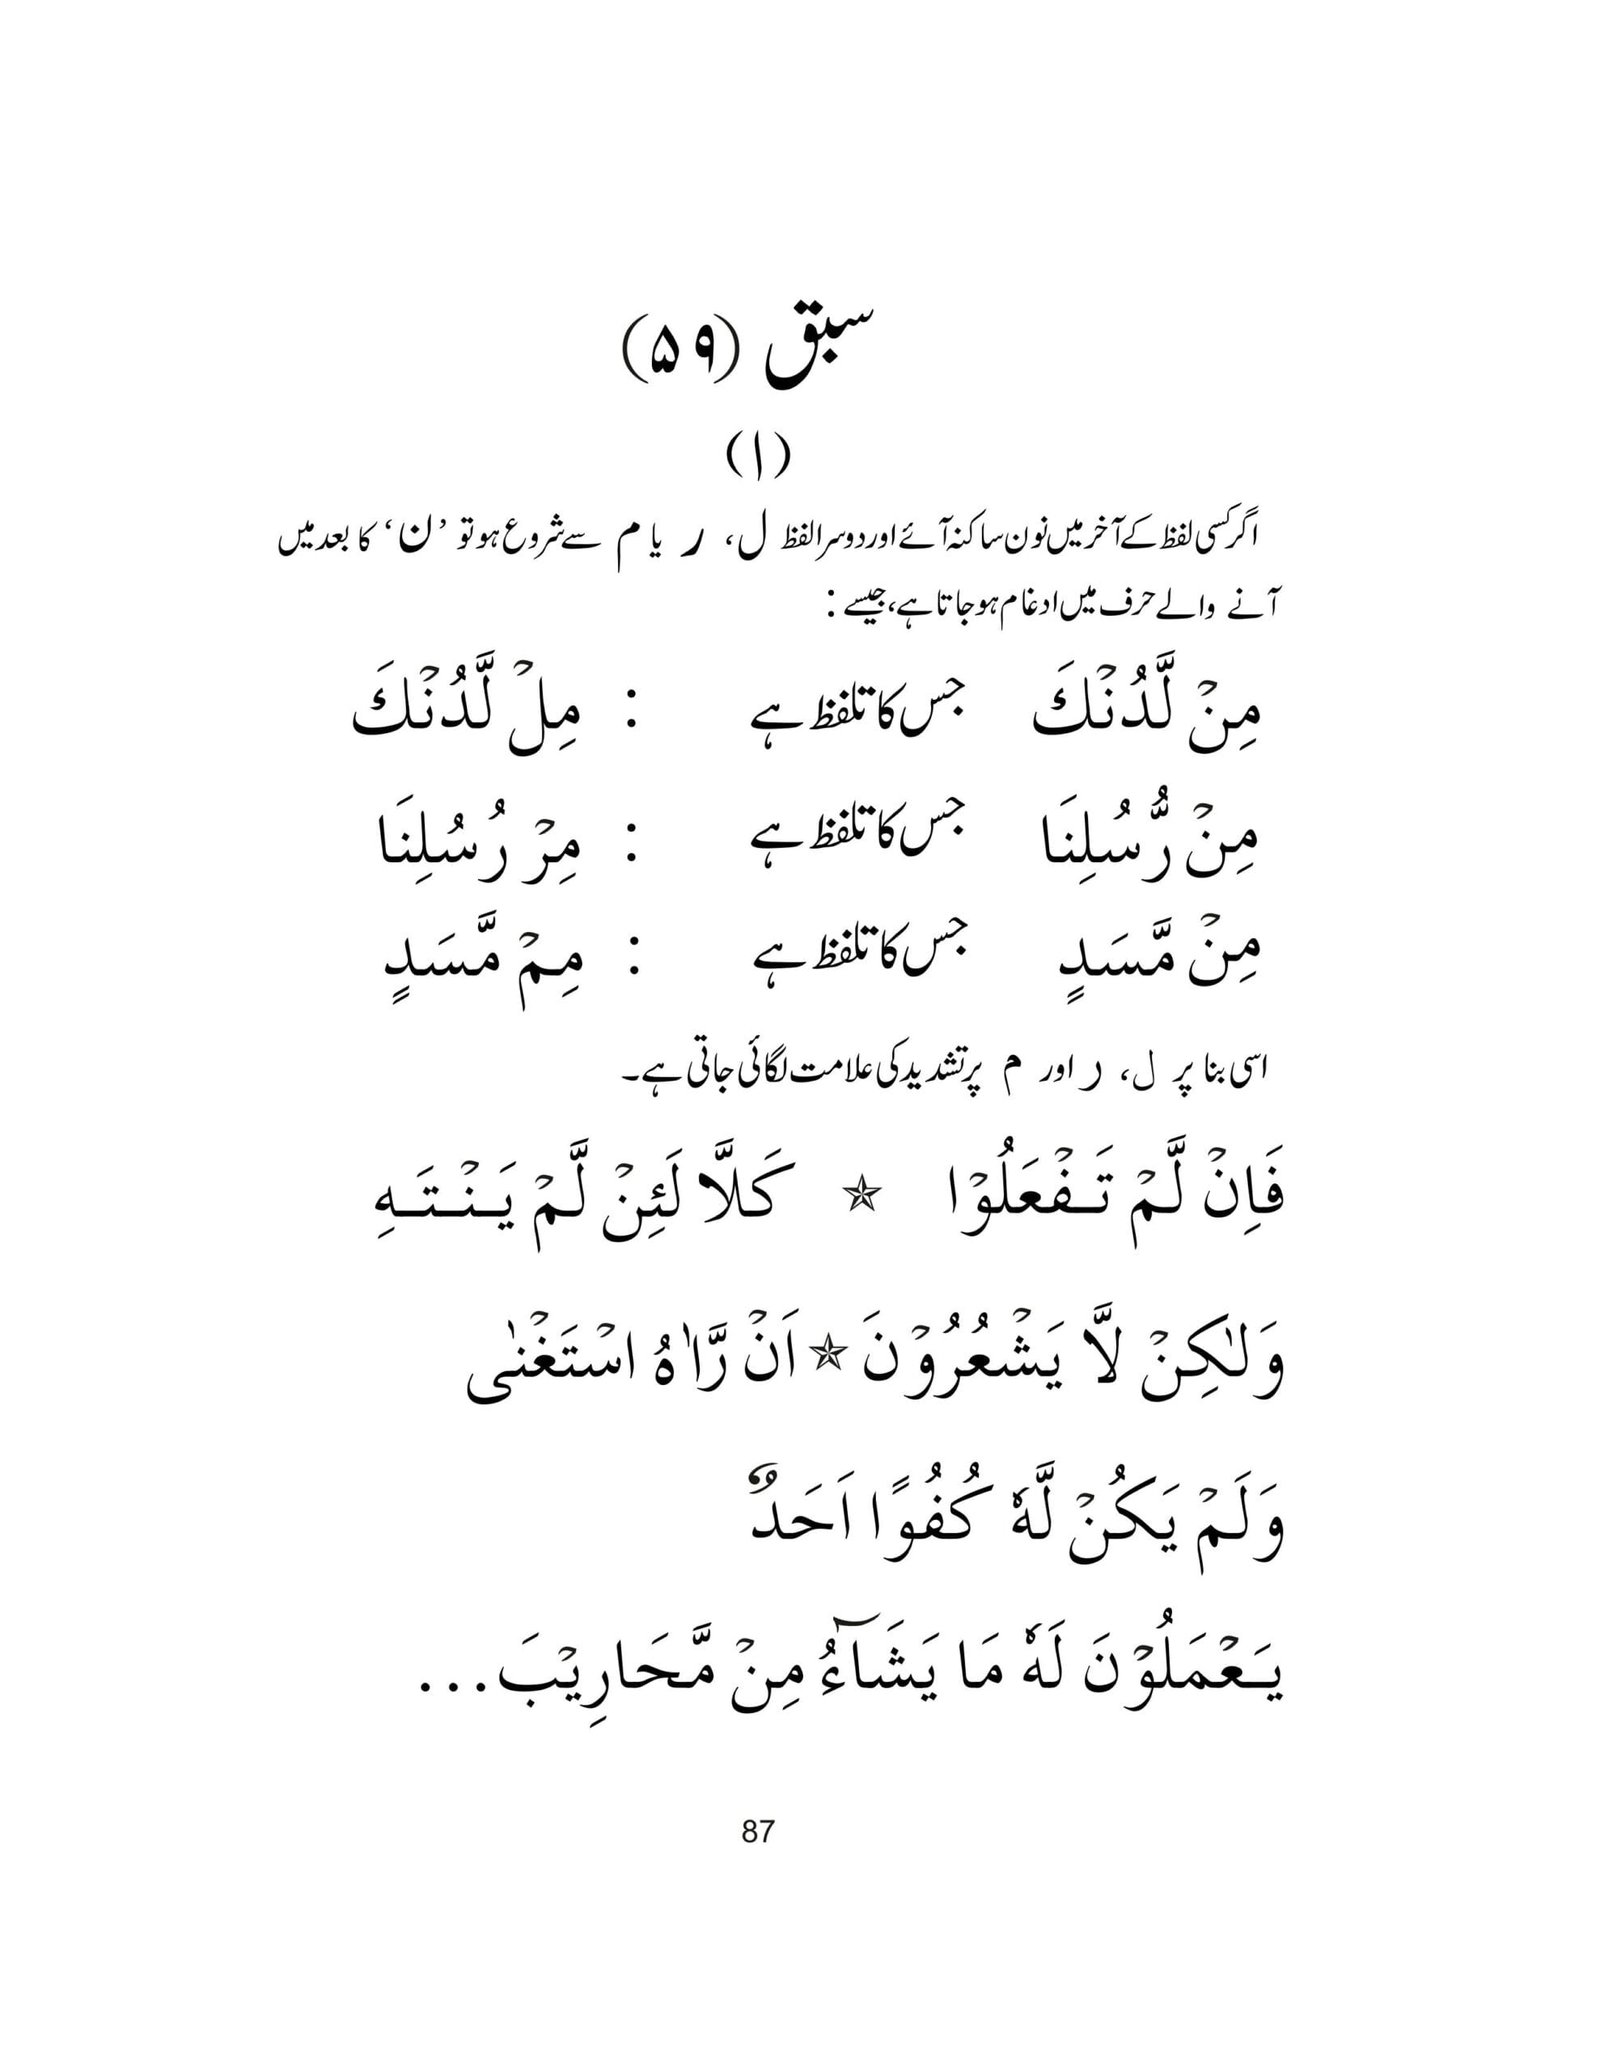 سبق (۵۹)
(۱)
اگر کسی لفظ کے آخر میں نون ساکنہ آئے اور دوسرا لفظ ل، ر یا م سے شروع ہو تو ’ن‘ کا بعد میں
آنے والے حرف میں ادغام ہو جاتا ہے، جیسے :
مِنْ لَّدُنْكَ جس کا تلفظ ہے : مِلْ لَّدُنْكَ
مِنْ رُّسُلِنَا جس کا تلفظ ہے : مِرْ رُسُلِنَا
مِنْ مَّسَدٍ جس کا تلفظ ہے : مِمْ مَّسَدٍ
اسی بنا پر ل، ر اور م پر تشدید کی علامت لگائی جاتی ہے۔
فَاِنْ لَّمْ تَـفْعَلُوْا ☆ كَلَّا لَئِنْ لَّمْ يَـنْـتَـهِ
وَلٰكِنْ لَّا يَشْعُرُوْنَ ☆ اَنْ رَّاٰهُ اسْتَغْنٰى
وَلَمْ يَكُنْ لَّهٗ كُفُوًا اَحَدٌ
يَـعْمَلُوْنَ لَهٗ مَا يَشَآءُ مِنْ مَّحَارِيْبَ...
87